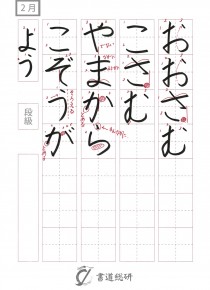 2月
おおさむ
こさむ
やまから
こぞうが
よう
段級
書道総研